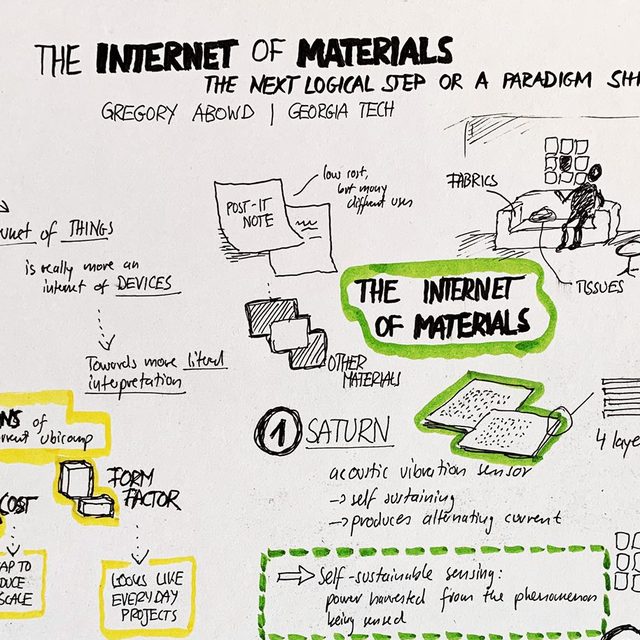 THE INTERNET OF MATERIALS
THE NEXT LOGICAL STEP OR A PARADIGM
GREGORY ABOWD | GEORGIA TECH
of THINGS
is really more an
internet of DEVICES
Towards more literal
interpretation
of
ubicomp
COST
FORM
FACTOR
TO
SCALE
LOOKS LIKE
EVERYDAY
PROJECTS
POST-IT
NOTE
low cost,
but many
different uses
OTHER
MATERIALS
FABRICS
TISSUES
THE INTERNET
OF MATERIALS
1 SATURN
acoustic vibration sensor
→ self sustaining
→ produces alternating current
4
⇒ Self-sustainable sensing:
power harvested from the phenomenon
being sensed